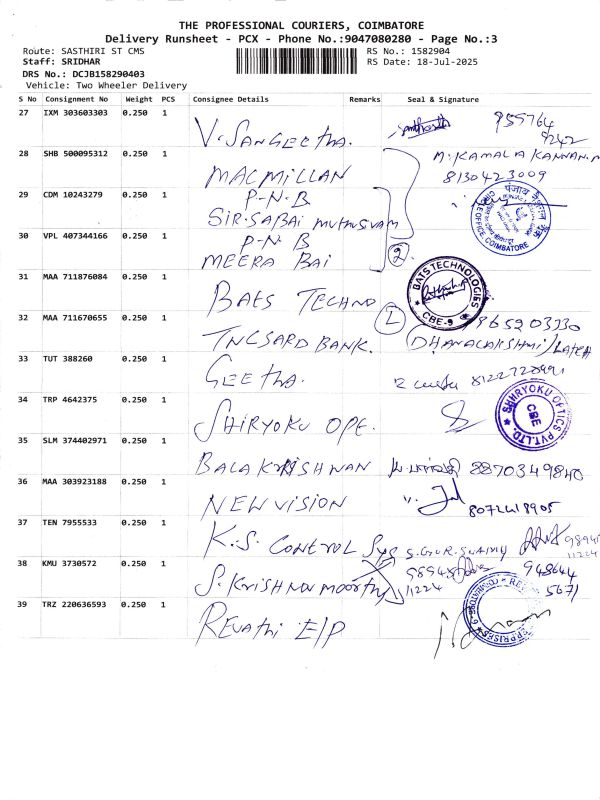 THE PROFESSIONAL COURIERS, COIMBATORE
Delivery Runsheet - PCX - Phone No.:9047080280 - Page No.:3
Route: SASTHIRI ST CMS RS No.: 1582904
Staff: SRIDHAR RS Date: 18-Jul-2025
DRS No.: DCJB158290403
Vehicle: Two Wheeler Delivery
S No Consignment No Weight PCS Consignee Details Remarks Seal & Signature
27 IXM 303603303 0.250 1 V. SANGEETHA. 959764
9242
28 SHB 500095312 0.250 1 MACMILLAN M. KAMALA KANNAN.M
8130423009
29 CDM 10243279 0.250 1 P-N-B
SIR-SABAI MUTHUSVAM
30 VPL 407344166 0.250 1 P-N-B
MEERA BAI 2
पंजाब नैशनल बैंक
COIMBATORE
31 MAA 711876084 0.250 1 BATS TECHNO
BATS TECHNOLOGIES CBE-9
32 MAA 711670655 0.250 1 TNCSARD BANK. (DHANALAKSHMI)
33 TUT 388260 0.250 1 GEETHA.
34 TRP 4642375 0.250 1 SHIRYOKU OPE.
SHIRYOKU OPTICS PVT.LTD. CBE
35 SLM 374402971 0.250 1 BALA KRISHNAN 8870349840
36 MAA 303923188 0.250 1 NEW VISION
8072418905
37 TEN 7955533 0.250 1 K.S. CONTROL SYS S.GURUSWAMY 98945
11224
38 KMU 3730572 0.250 1 S. Krishna moorthy 98945
11224 5671
39 TRZ 220636593 0.250 1 REVATHI E/P